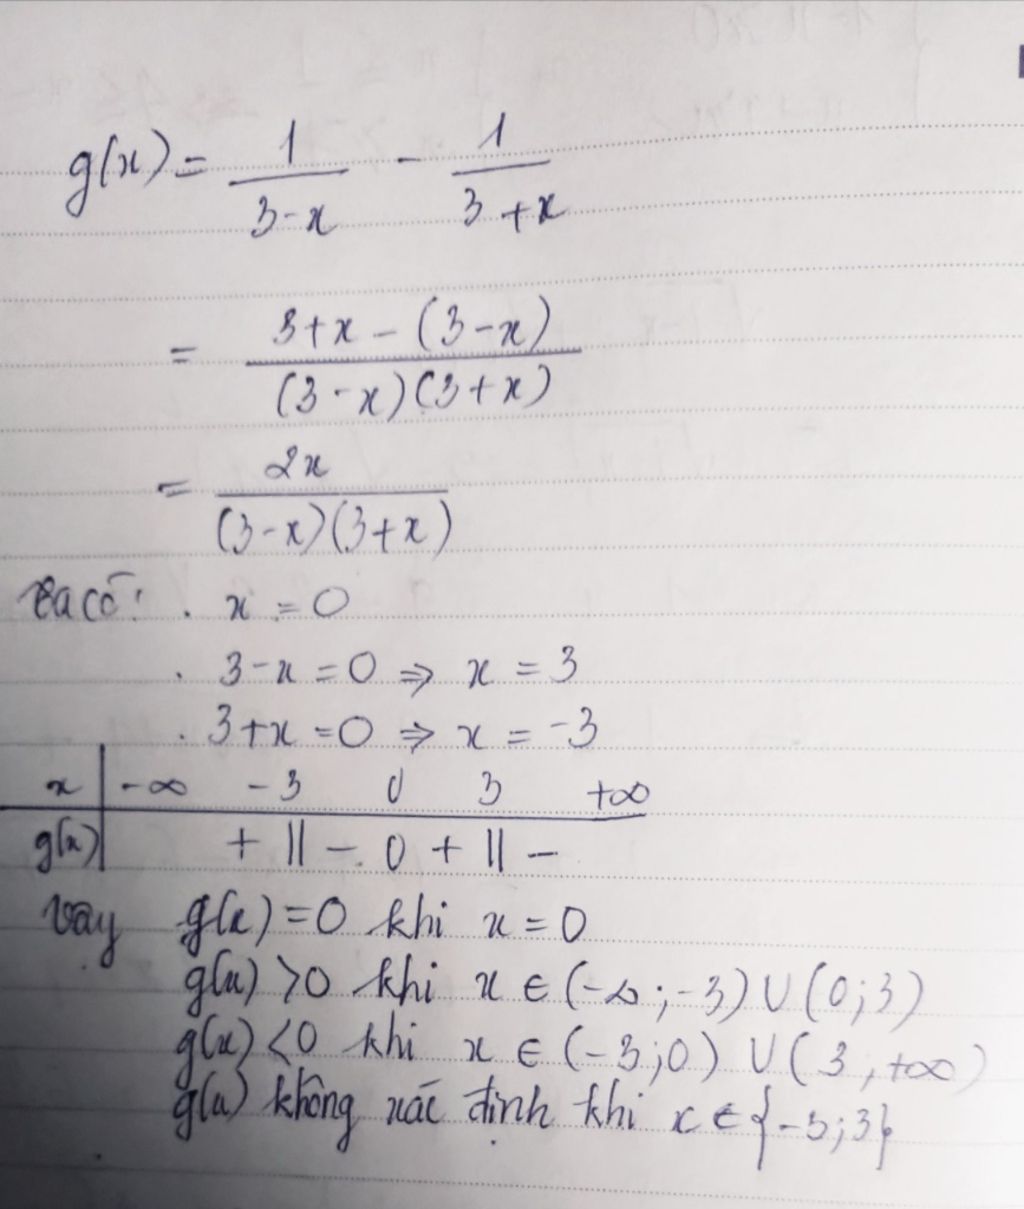 g(x) = 1/(3-x) - 1/(3+x)
= (3+x-(3-x))/((3-x)(3+x))
= 2x/((3-x)(3+x))
Ta có: . x = 0
. 3-x = 0 ⇒ x = 3
. 3+x = 0 ⇒ x = -3
x | -∞ -3 0 3 +∞
g(x) | + || - 0 + || -
Vậy g(x) = 0 khi x = 0
g(x) > 0 khi x ∈ (-∞; -3) ∪ (0; 3)
g(x) < 0 khi x ∈ (-3; 0) ∪ (3; +∞)
g(x) không xác định khi x ∈ {-3; 3}